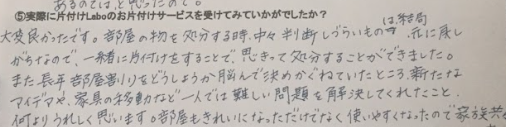 あるのでは、と思ったので。
⑤実際に片付けLaboのお片付けサービスを受けてみていかがでしたか？
大変良かったです。部屋の物を処分する時、中々判断しづらいものは結局元に戻し
がちなので、一緒に片付けをすることで、思きって処分することができました。
また長年部屋割りをどうしようか悩んで決めかねていたところ、新たな
アイデアや、家具の移動など一人では難しい問題を解決してくれたこと、
何よりうれしく思います。部屋もきれいになっただけでなく使いやすくなったので家族共